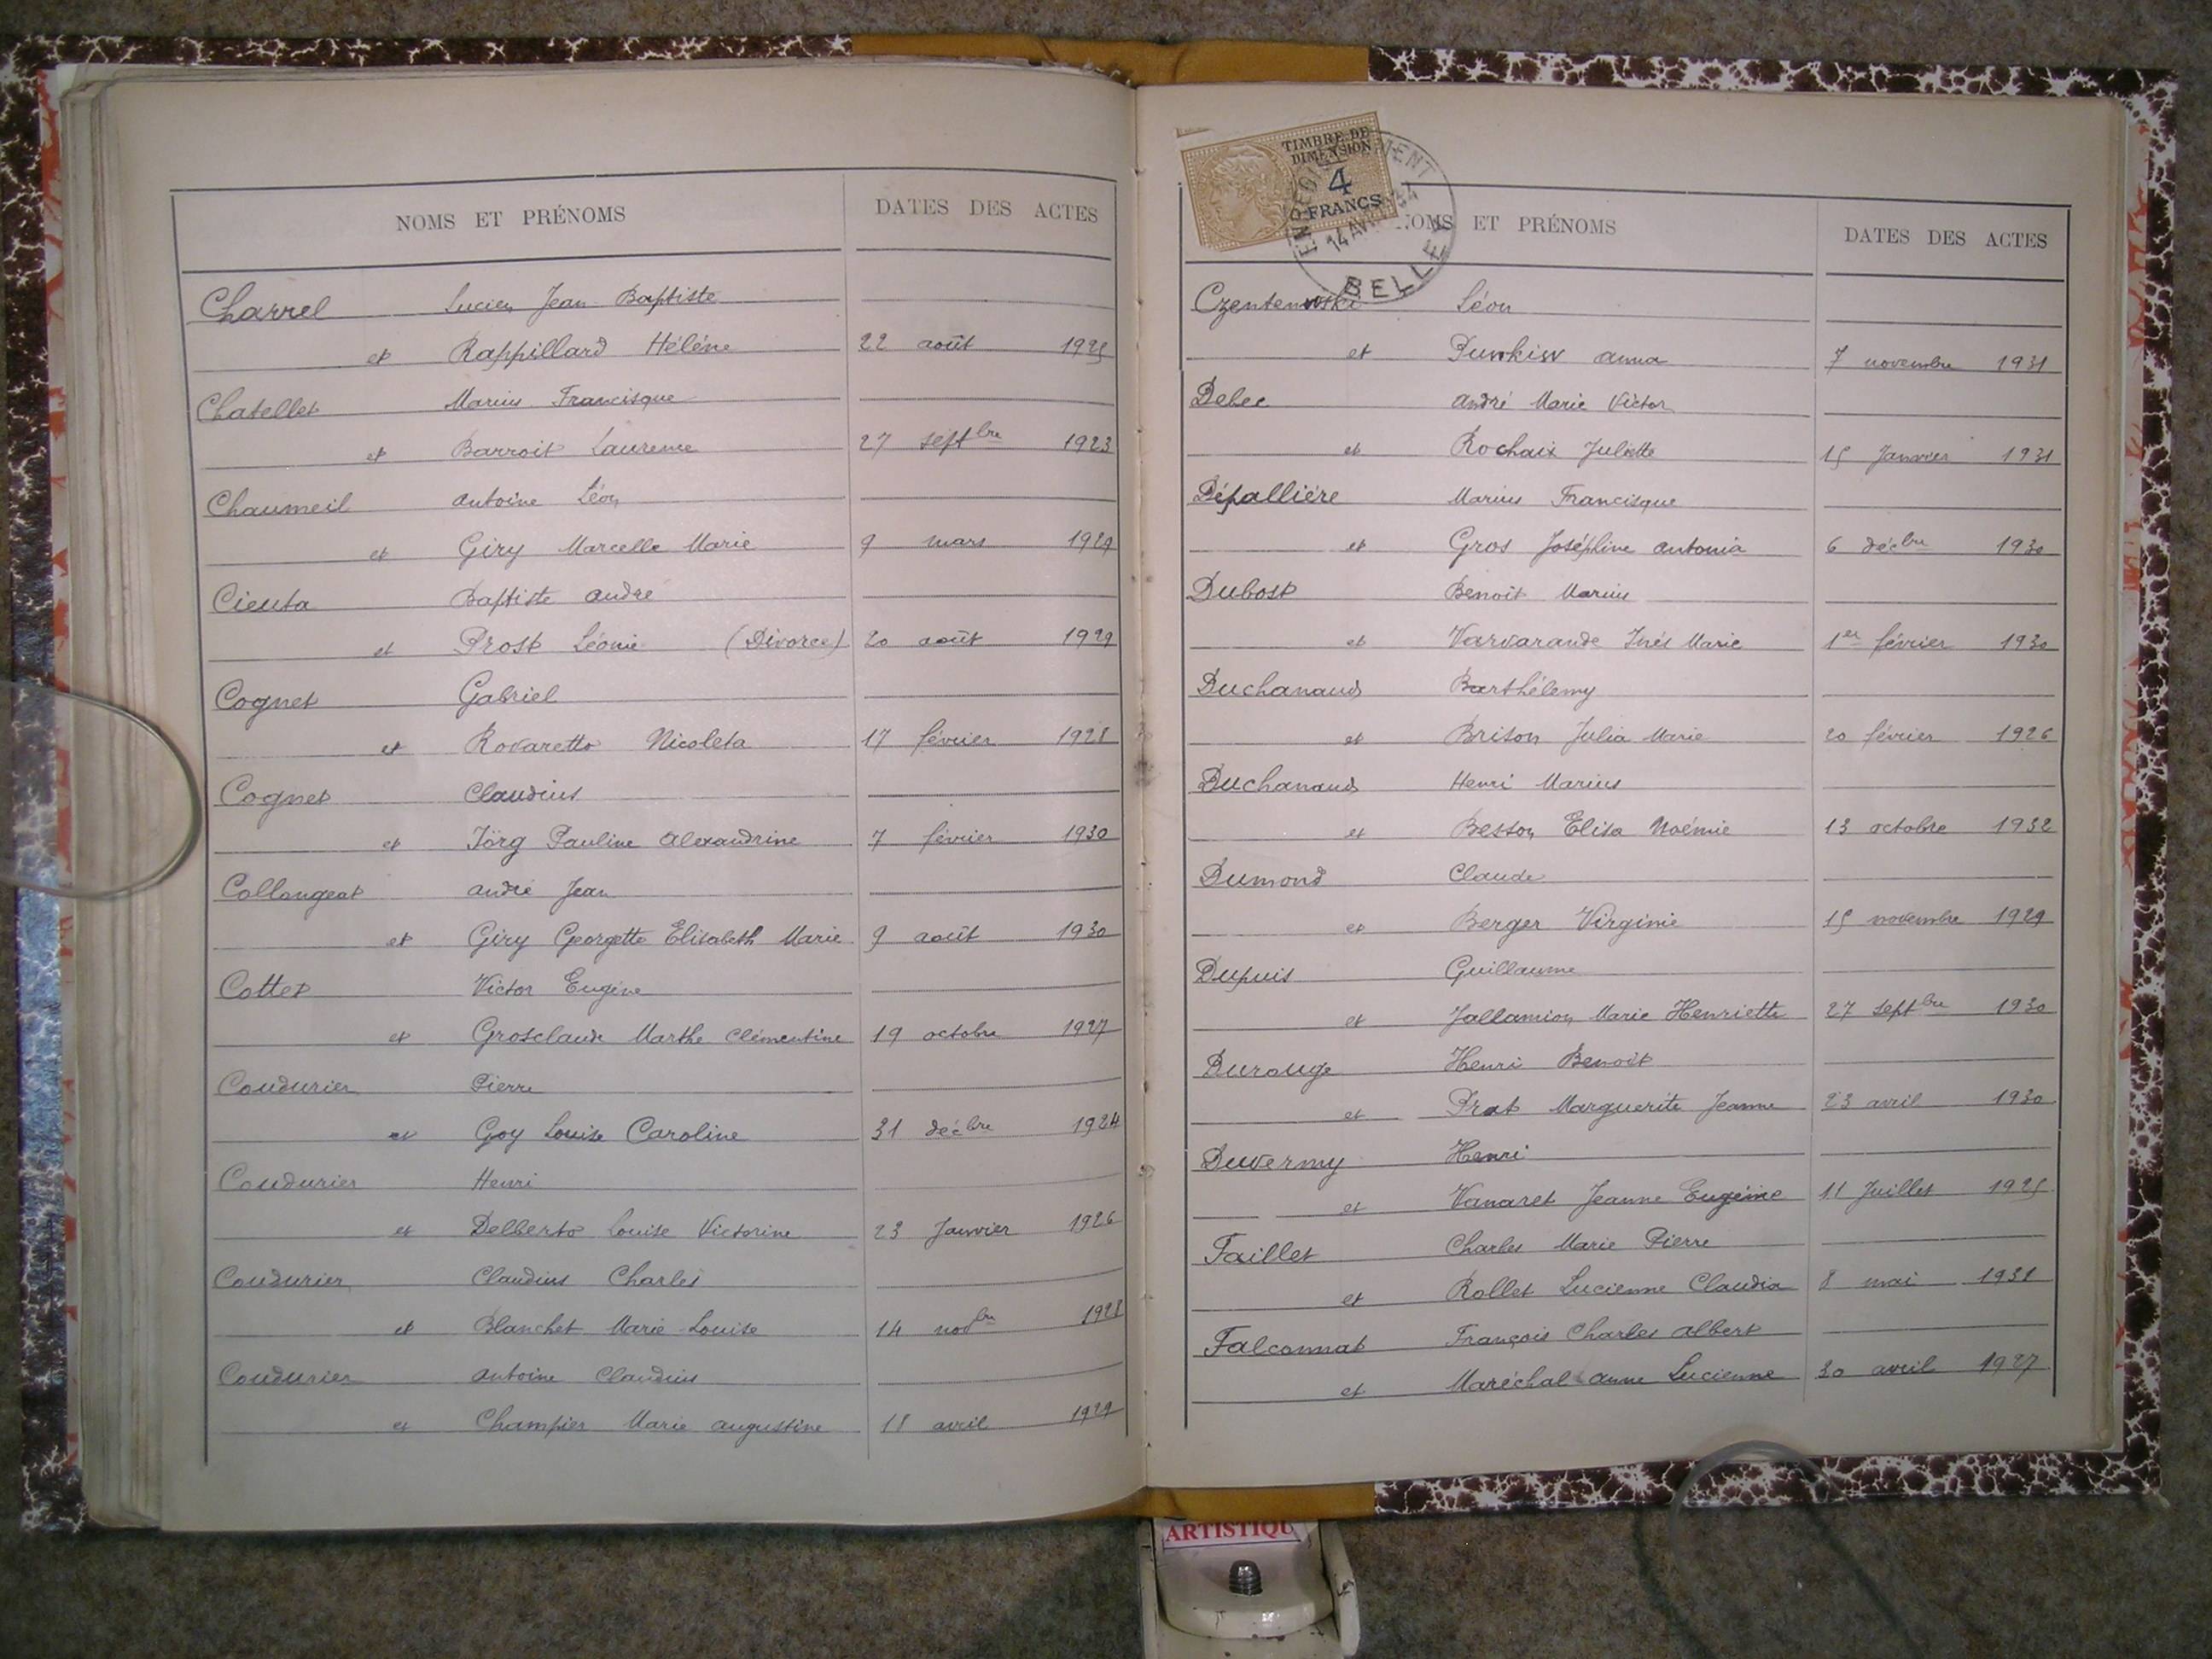 NOMS ET PRÉNOMS DATES DES ACTES
Charrel Lucien Jean Baptiste
et Rappillard Hélène 22 août 1925
Chatellet Marius Francisque
et Barroit Laurence 27 septbre 1923
Chaumeil Antoine Léon
et Giry Marcelle Marie 9 mars 1929
Cieuta Baptiste André
et Prost Léonie (Divorce) 20 août 1929
Cognet Gabriel
et Rovaretto Nicoleta 17 février 1928
Cognet Claudius
et Jörg Pauline Alexandrine 7 février 1930
Collongeat André Jean
et Giry Georgette Elisabeth Marie 9 août 1930
Cottet Victor Eugène
et Grosclaude Marthe Clémentine 19 octobre 1927
Coudurier Pierre
et Goy Louise Caroline 31 décbre 1924
Coudurier Henri
et Delberto Louise Victorine 23 Janvier 1926
Coudurier Claudius Charles
et Blanchet Marie Louise 14 novbre 1928
Coudurier Antoine Claudius
et Champier Marie Augustine 18 avril 1929
TIMBRE DE
DIMENSION
4
FRANCS
14 AV
BELLEY
NOMS ET PRÉNOMS DATES DES ACTES
Léon
et Anna 7 novembre 1931
Debec André Marie Victor
et Rochaix Juliette 15 Janvier 1931
Dépallière Marius Francisque
et Gros Joséphine Antonia 6 décbre 1930
Dubost Benoit Marius
et Varvarande Inès Marie 1er février 1930
Duchanaud Barthélemy
et Brison Julia Marie 20 février 1926
Duchanaud Henri Marius
et Besson Elisa Noémie 13 octobre 1932
Dumond Claude
et Berger Virginie 15 novembre 1929
Dupuis Guillaume
et Jallamion Marie Henriette 27 septbre 1930
Durouge Henri Benoit
et Prat Marguerite Jeanne 23 avril 1930
Duvermy Henri
et Vanaret Jeanne Eugénie 11 Juillet 1925
Faillet Charles Marie Pierre
et Rollet Lucienne Claudia 8 mai 1931
Falconnat François Charles Albert
et Maréchal Anne Lucienne 30 avril 1927
ARTISTIQU